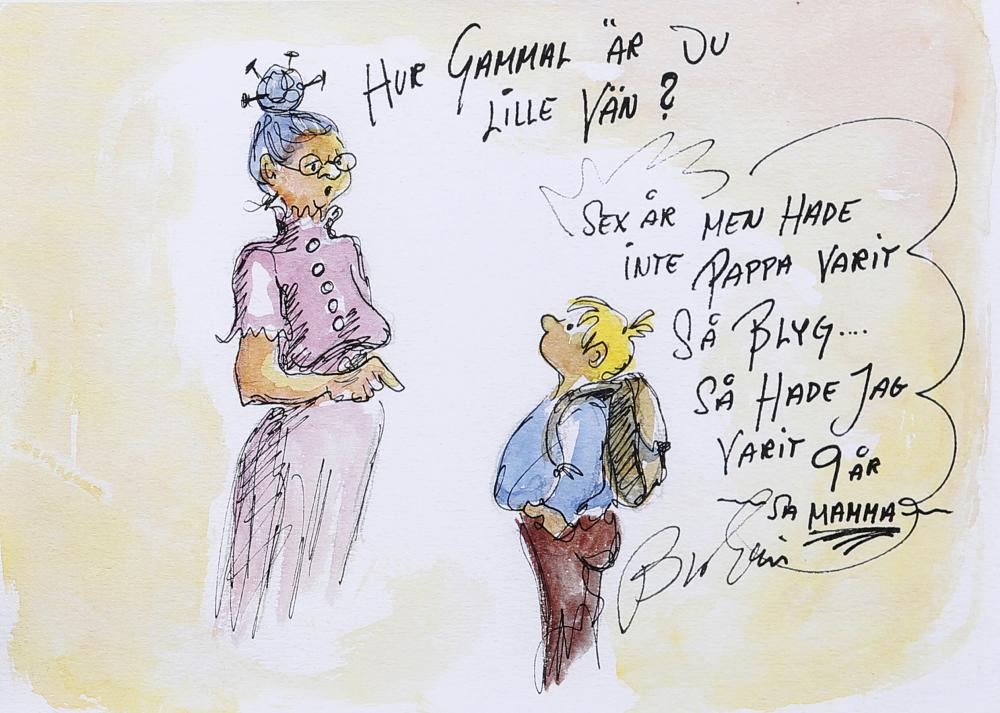 HUR GAMMAL ÄR DU
LILLE VÄN?
SEX ÅR MEN HADE
INTE PAPPA VARIT
SÅ BLYG....
SÅ HADE JAG
VARIT 9 ÅR
SA MAMMA